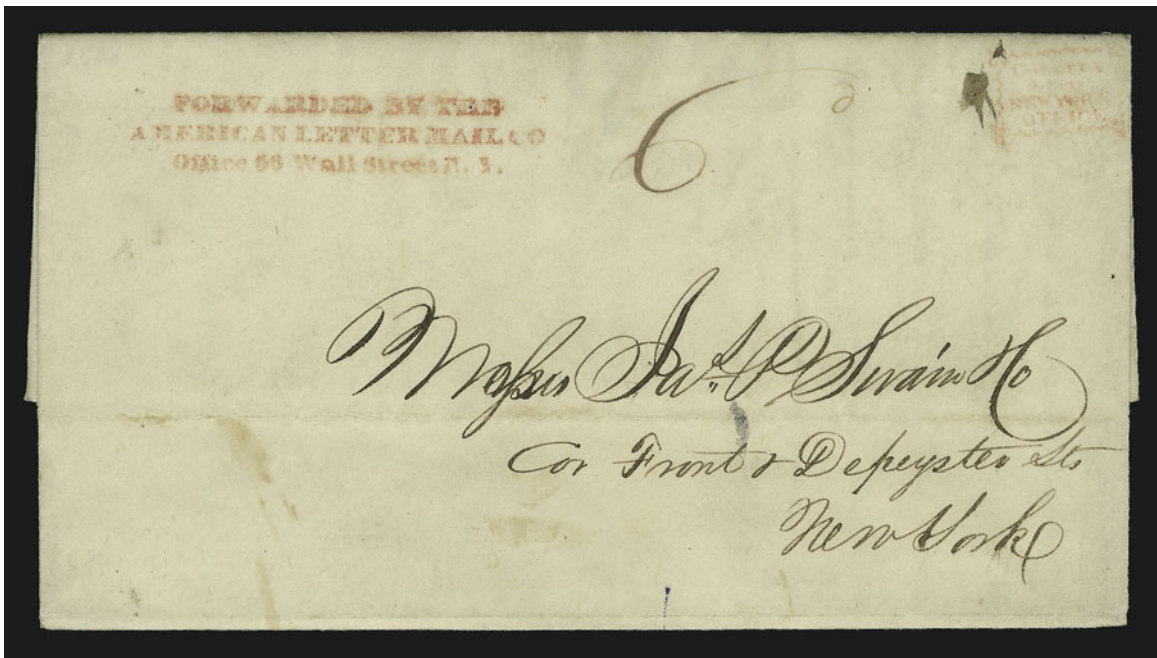 FORWARDED BY THE
AMERICAN LETTER MAIL CO
Office 56 Wall Street N. Y.
6
COLLECT
NEW YORK
OFFICE
Messrs Jas. P Swain & Co
Cor Front & Depeyster Sts
New York